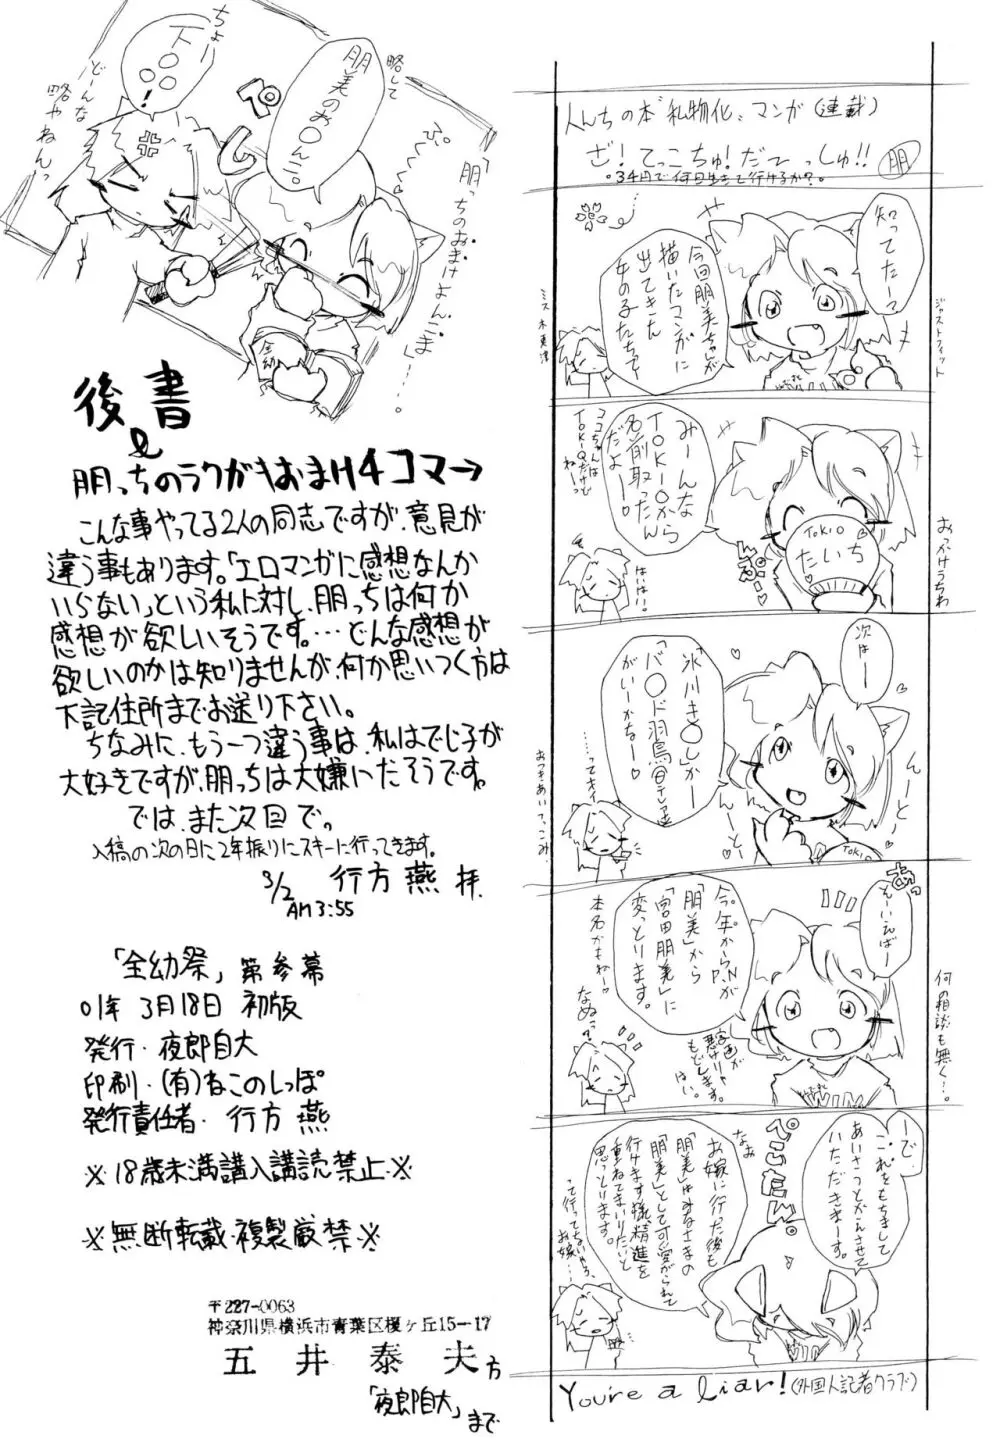 「朋っちのおまけよんこま」…。
ぷぐくく
略して
朋美のお○んこ。
ちょー
下○○○!
どーんな
略やねんっ
全幼
後書
&
朋っちのラクガキおまけ4コマ→
こんな事やってる2人の同志ですが、意見が
違う事もあります。「エロマンガに感想なんか
いらない」という私に対し、朋っちは何か
感想が欲しいそうです。…どんな感想が
欲しいのかは知りませんが、何か思いつく方は
下記住所までお送り下さい。
ちなみに、もう一つ違う事は、私はでじ子が
大好きですが、朋っちは大嫌いだそうです。
では、また次回で。
入稿の次の日に2年振りにスキーに行ってきます。
3/2
AM 3:55
行方 燕 拝.
「全幼祭」第参幕
01年 3月18日 初版
発行・夜郎自大
印刷・(有)ねこのしっぽ
発行責任者・行方 燕
※18歳未満講入講読禁止※
※無断転載・複製厳禁※
〒227-0063
神奈川県横浜市青葉区榎ヶ丘15-17
五井 泰夫方
「夜郎自大」まで
人んちの本"私物化"マンガ(連載)
ざ!てっこちゅ!だてっしゅ!! 朋
。34円で何日生きて行けるか?。
知ってたーマ
今回朋美ちゃんが
描いたマンガに
出てきた
女の子たちって
ジャストフィット
ミス木更津
みーんな
TOKIOから
名前取ったん
だよー。
ココちゃんは
TOKIOだけど
ねーっ
はいはい。
TOKIO
たいち
おっかけうちわ
次はー
「氷川き○し」か
「バ○ド羽鳥@テレ透
がいーかなー♡
んーとー
んーとー
…ってオイ
TOKIO
おつきあいてっこみ
あっ
そーいえばー
今。年。からP.Nが
「朋美」から
「宮田朋美」に
変っとります。
字画が
悪けりゃ
もどします。
はい。
本名かもねー♡
なぬっ?
何の相談も無く…。
ーでー
これをもちまして
あいさつとかえさせて
いただきまーす。
ぺこたん。
なお
お嫁に行った後も
「朋美」はみなさまの
「朋美」として可愛がられて
行けます様、精進を
重ねてまいりたいと
思っとります。
って行ってないやろ、
お嫁…。
You're a liar! (外国人記者クラブ)